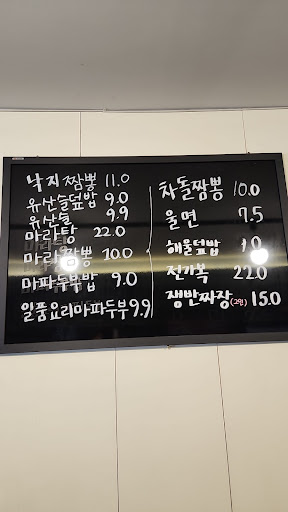 낙지짬뽕 11.0
유산슬덮밥 9.0
유산슬 9.9
마라탕 22.0
마라짬뽕 10.0
마파두부밥 9.0
일품요리마파두부 9.9
차돌짬뽕 10.0
울면 7.5
해물덮밥
전가복 22.0
쟁반짜장(2인) 15.0